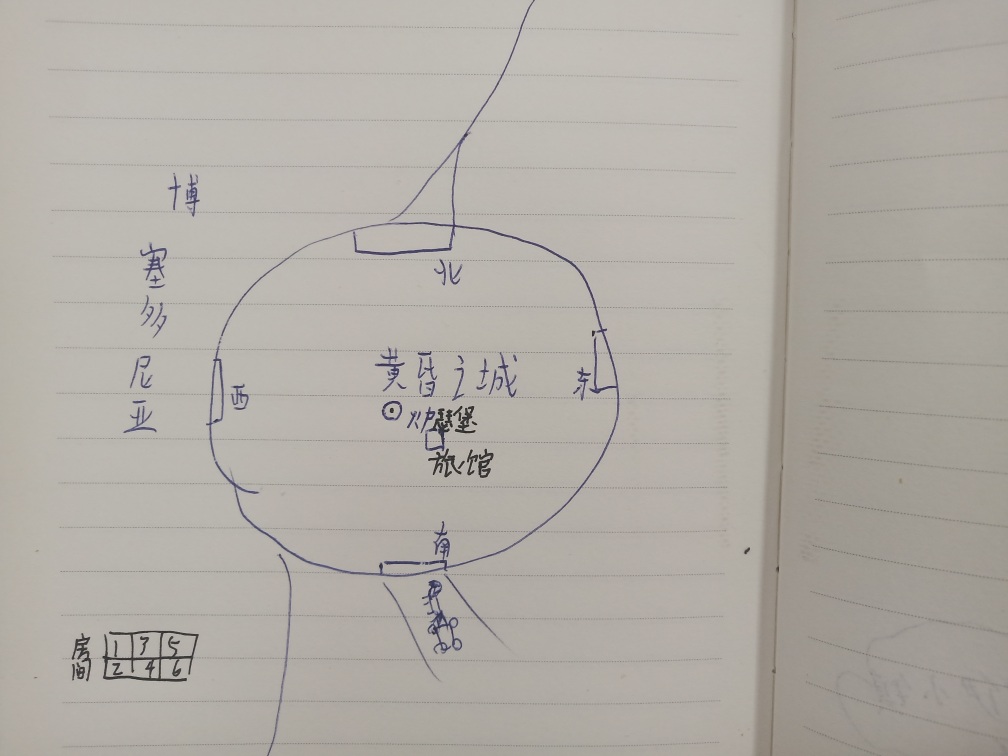 博
塞
多
尼
亚
北
西
东
黄昏之城
炉
堡
旅馆
南
房间
1 3 5
2 4 6